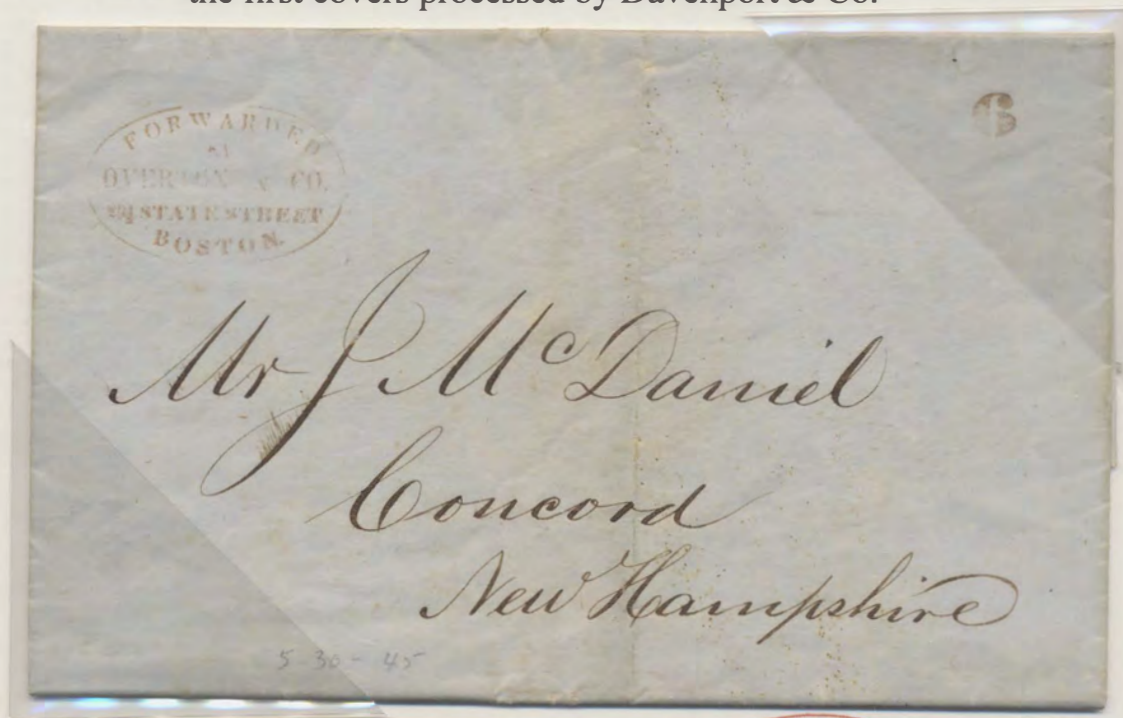 the first covers processed by Davenport & Co.
FORWARDED
OVERTON & CO.
STATE STREET
BOSTON.
6
Mr J McDaniel
Concord
New Hampshire
5-30-45